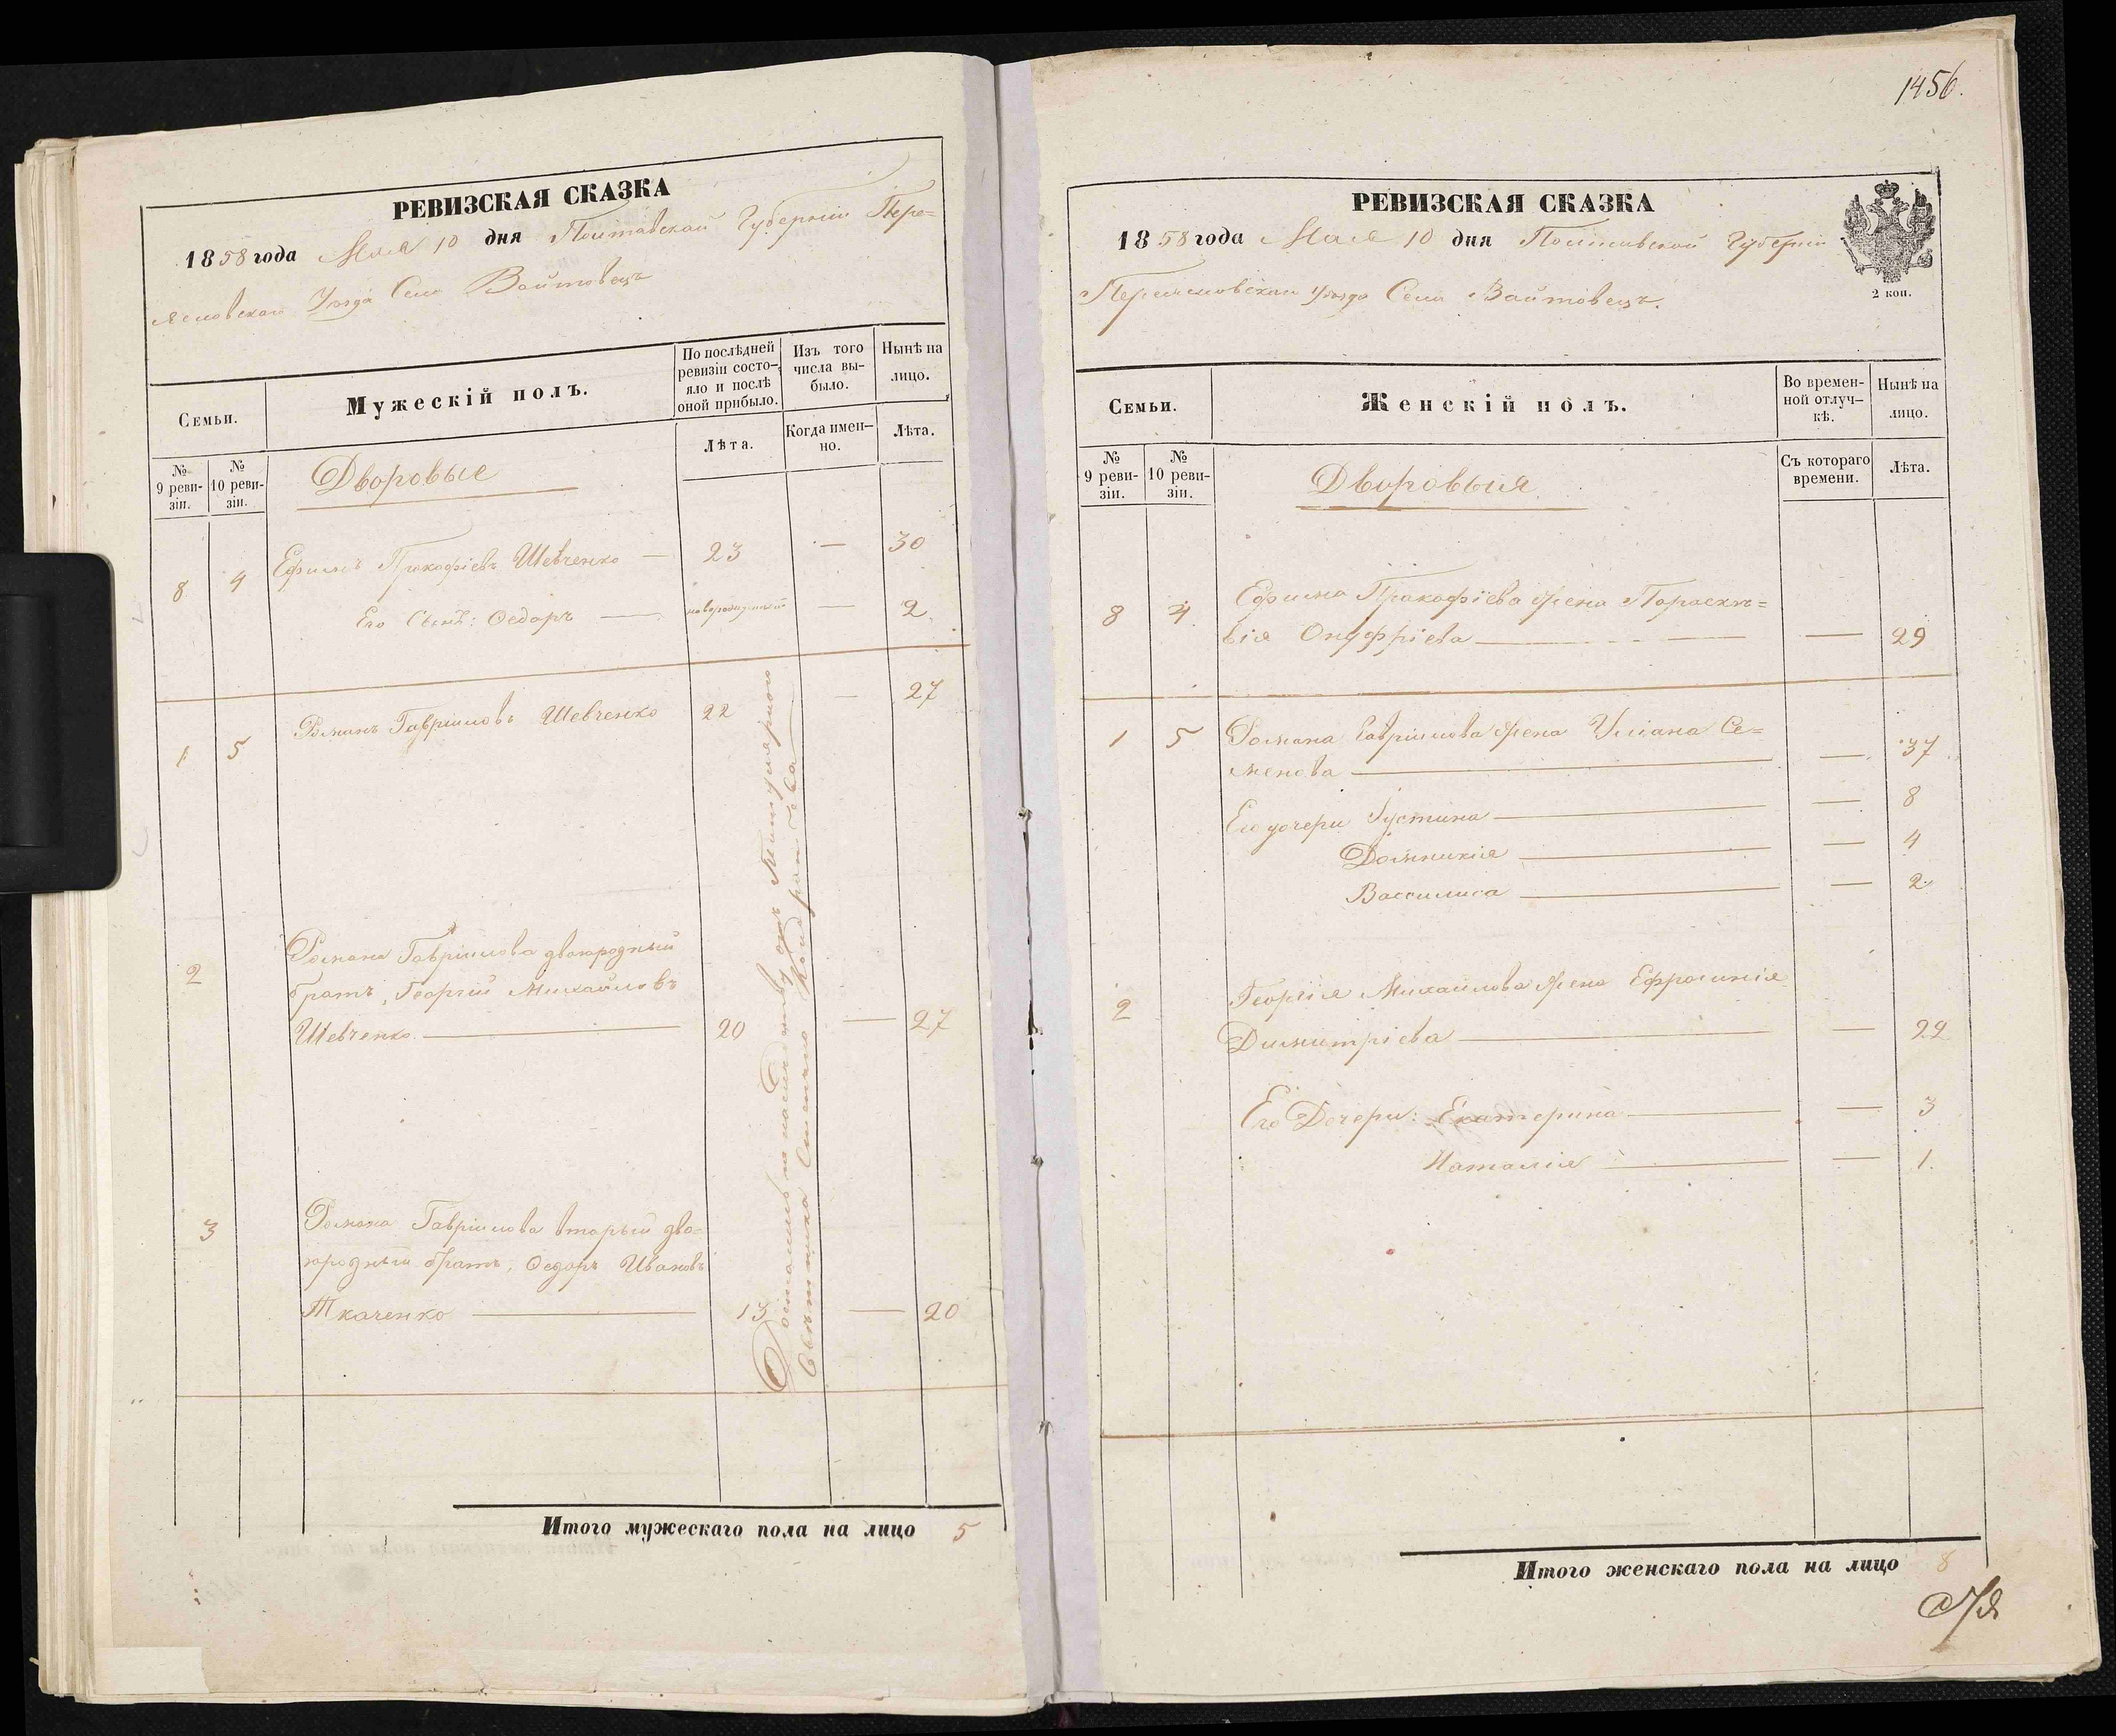 РЕВИЗСКАЯ СКАЗКА
1858 года Мая 10 дня Полтавской Губерніи Пере=
яславскаго Уѣзда Села Войтовецъ
Семьи.
Мужескій полъ.
По послѣдней ревизіи состо-
яло и послѣ оной прибыло.
Изъ того числа вы-
было.
Нынѣ на лицо.
Лѣта.
Когда имен-
но.
Лѣта.
№ 9 реви-
зіи.
№ 10 реви-
зіи.
Дворовые
8 4 Ефимъ Прокофіевъ Шевченко — 23 — 30
Его Сынъ: Ѳедоръ — новорожденный — 2.
1 5 Романъ Гавріиловъ Шевченко 22 — 27
2 Романа Гавріилова двоюродный
братъ, Георгій Михайловъ
Шевченко. — 20 — 27
3 Романа Гавріилова вторый дво-
юродный братъ, Ѳедоръ Ивановъ
Ткаченко — 13 — 20
Достались по наслѣдству отъ Титулярного
Совѣтника
Итого мужескаго пола на лицо 5
1456.
РЕВИЗСКАЯ СКАЗКА
1858 года Мая 10 дня Полтавской Губерніи
2 коп.
Переяславскаго Уѣзда Села Войтовецъ.
Семьи.
Женскій полъ.
Во времен-
ной отлуч-
кѣ.
Нынѣ на лицо.
№ 9 реви-
зіи.
№ 10 реви-
зіи.
Съ котораго времени.
Лѣта.
Дворовыя
8 4. Ефима Прокофіева жена Параскѣ=
вія Онуфріева — — 29
1 5 Романа Гавріилова жена Уліана Се=
менова — — 37
Его дочери Іустина — — 8
Домникія — — 4
Вассилиса — — 2.
2 Георгія Михайлова жена Ефросинія
Димитріева — — 22
Его Дочери: Екатерина — — 3
Наталія — — 1.
Итого женскаго пола на лицо 8